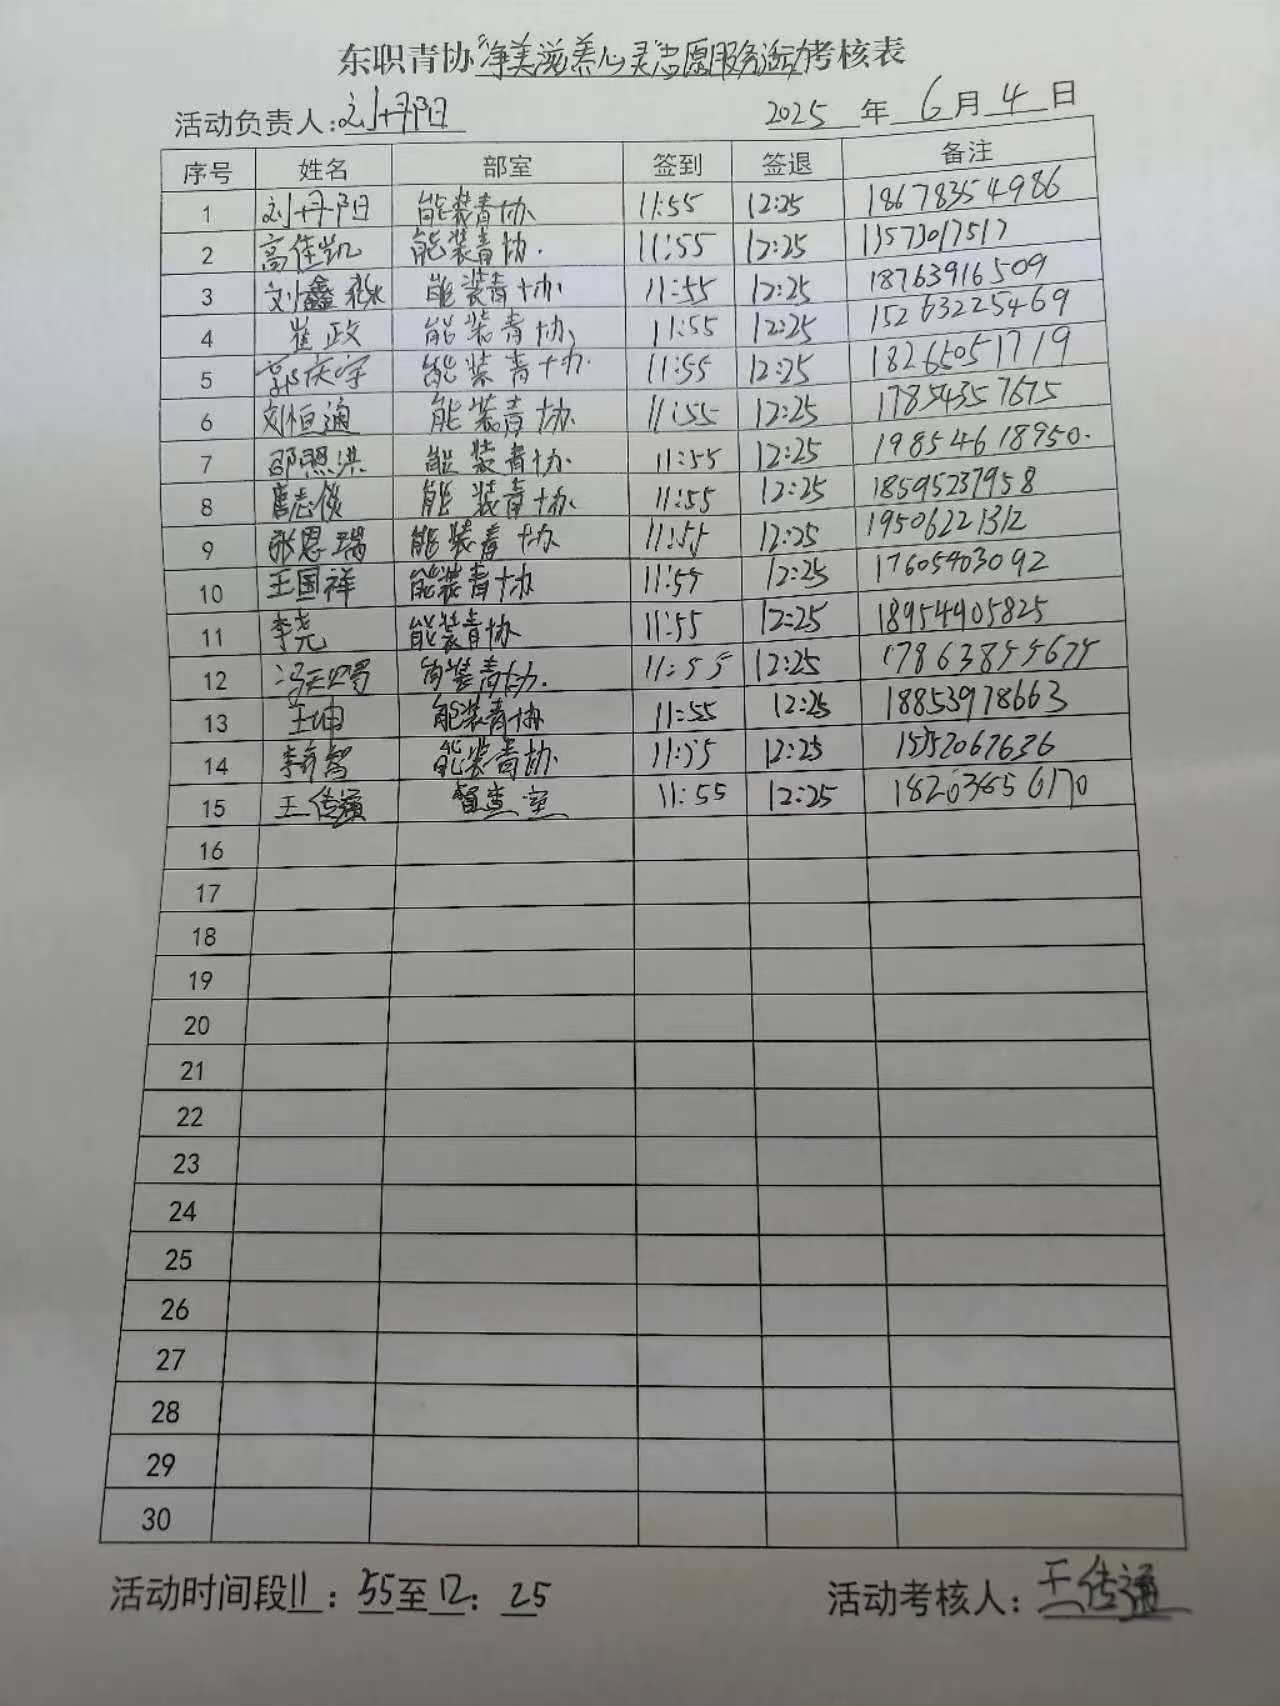 东职青协“净美滋养心灵”志愿服务活动考核表
活动负责人:刘丹阳 2025 年 6 月 4 日
序号 姓名 部室 签到 签退 备注
1 刘丹阳 能装青协 11:55 12:25 18678354986
2 高佳凯 能装青协. 11:55 12:25 13573017517
3 刘鑫淼 能装青协 11:55 12:25 18763916509
4 崔政 能装青协 11:55 12:25 15263225469
5 郭庆宇 能装青协. 11:55 12:25 18265051719
6 刘恒通 能装青协 11:55 12:25 17854357675
7 邵照洪 能装青协. 11:55 12:25 19854618950.
8 唐志俊 能装青协 11:55 12:25 18595237958
9 张恩瑞 能装青协 11:55 12:25 19506221312
10 王国祥 能装青协 11:55 12:25 17605403092
11 李尧 能装青协 11:55 12:25 18954905825
12 能装青协. 11:55 12:25 17863855675
13 王坤 能装青协 11:55 12:25 18853978663
14 能装青协. 11:55 12:25
15 王传通 督查室 11:55 12:25 18203656170
16
17
18
19
20
21
22
23
24
25
26
27
28
29
30
活动时间段11:55至12:25 活动考核人:王传通